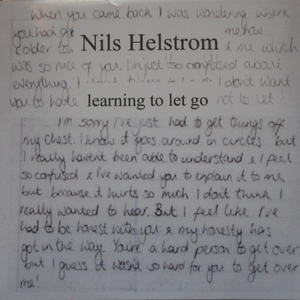 When you came back I was wondering where
you had me how
colder & me which
was so nice of you. I'm just so confused about
everything. I don't want
you to hate not to let
Nils Helstrom
learning to let go
I'm sorry I've just had to get things off
my chest. I know it goes around in circles but
I really havent been able to understand & I feel
so confused & I've wanted you to explain it to me
but because it hurts so much I don't think I
really wanted to hear. But I feel like I've
had to be honest with you & my honesty has
got in the way. You're a hard person to get over
but I guess it wasn't so hard for you to get over
me!